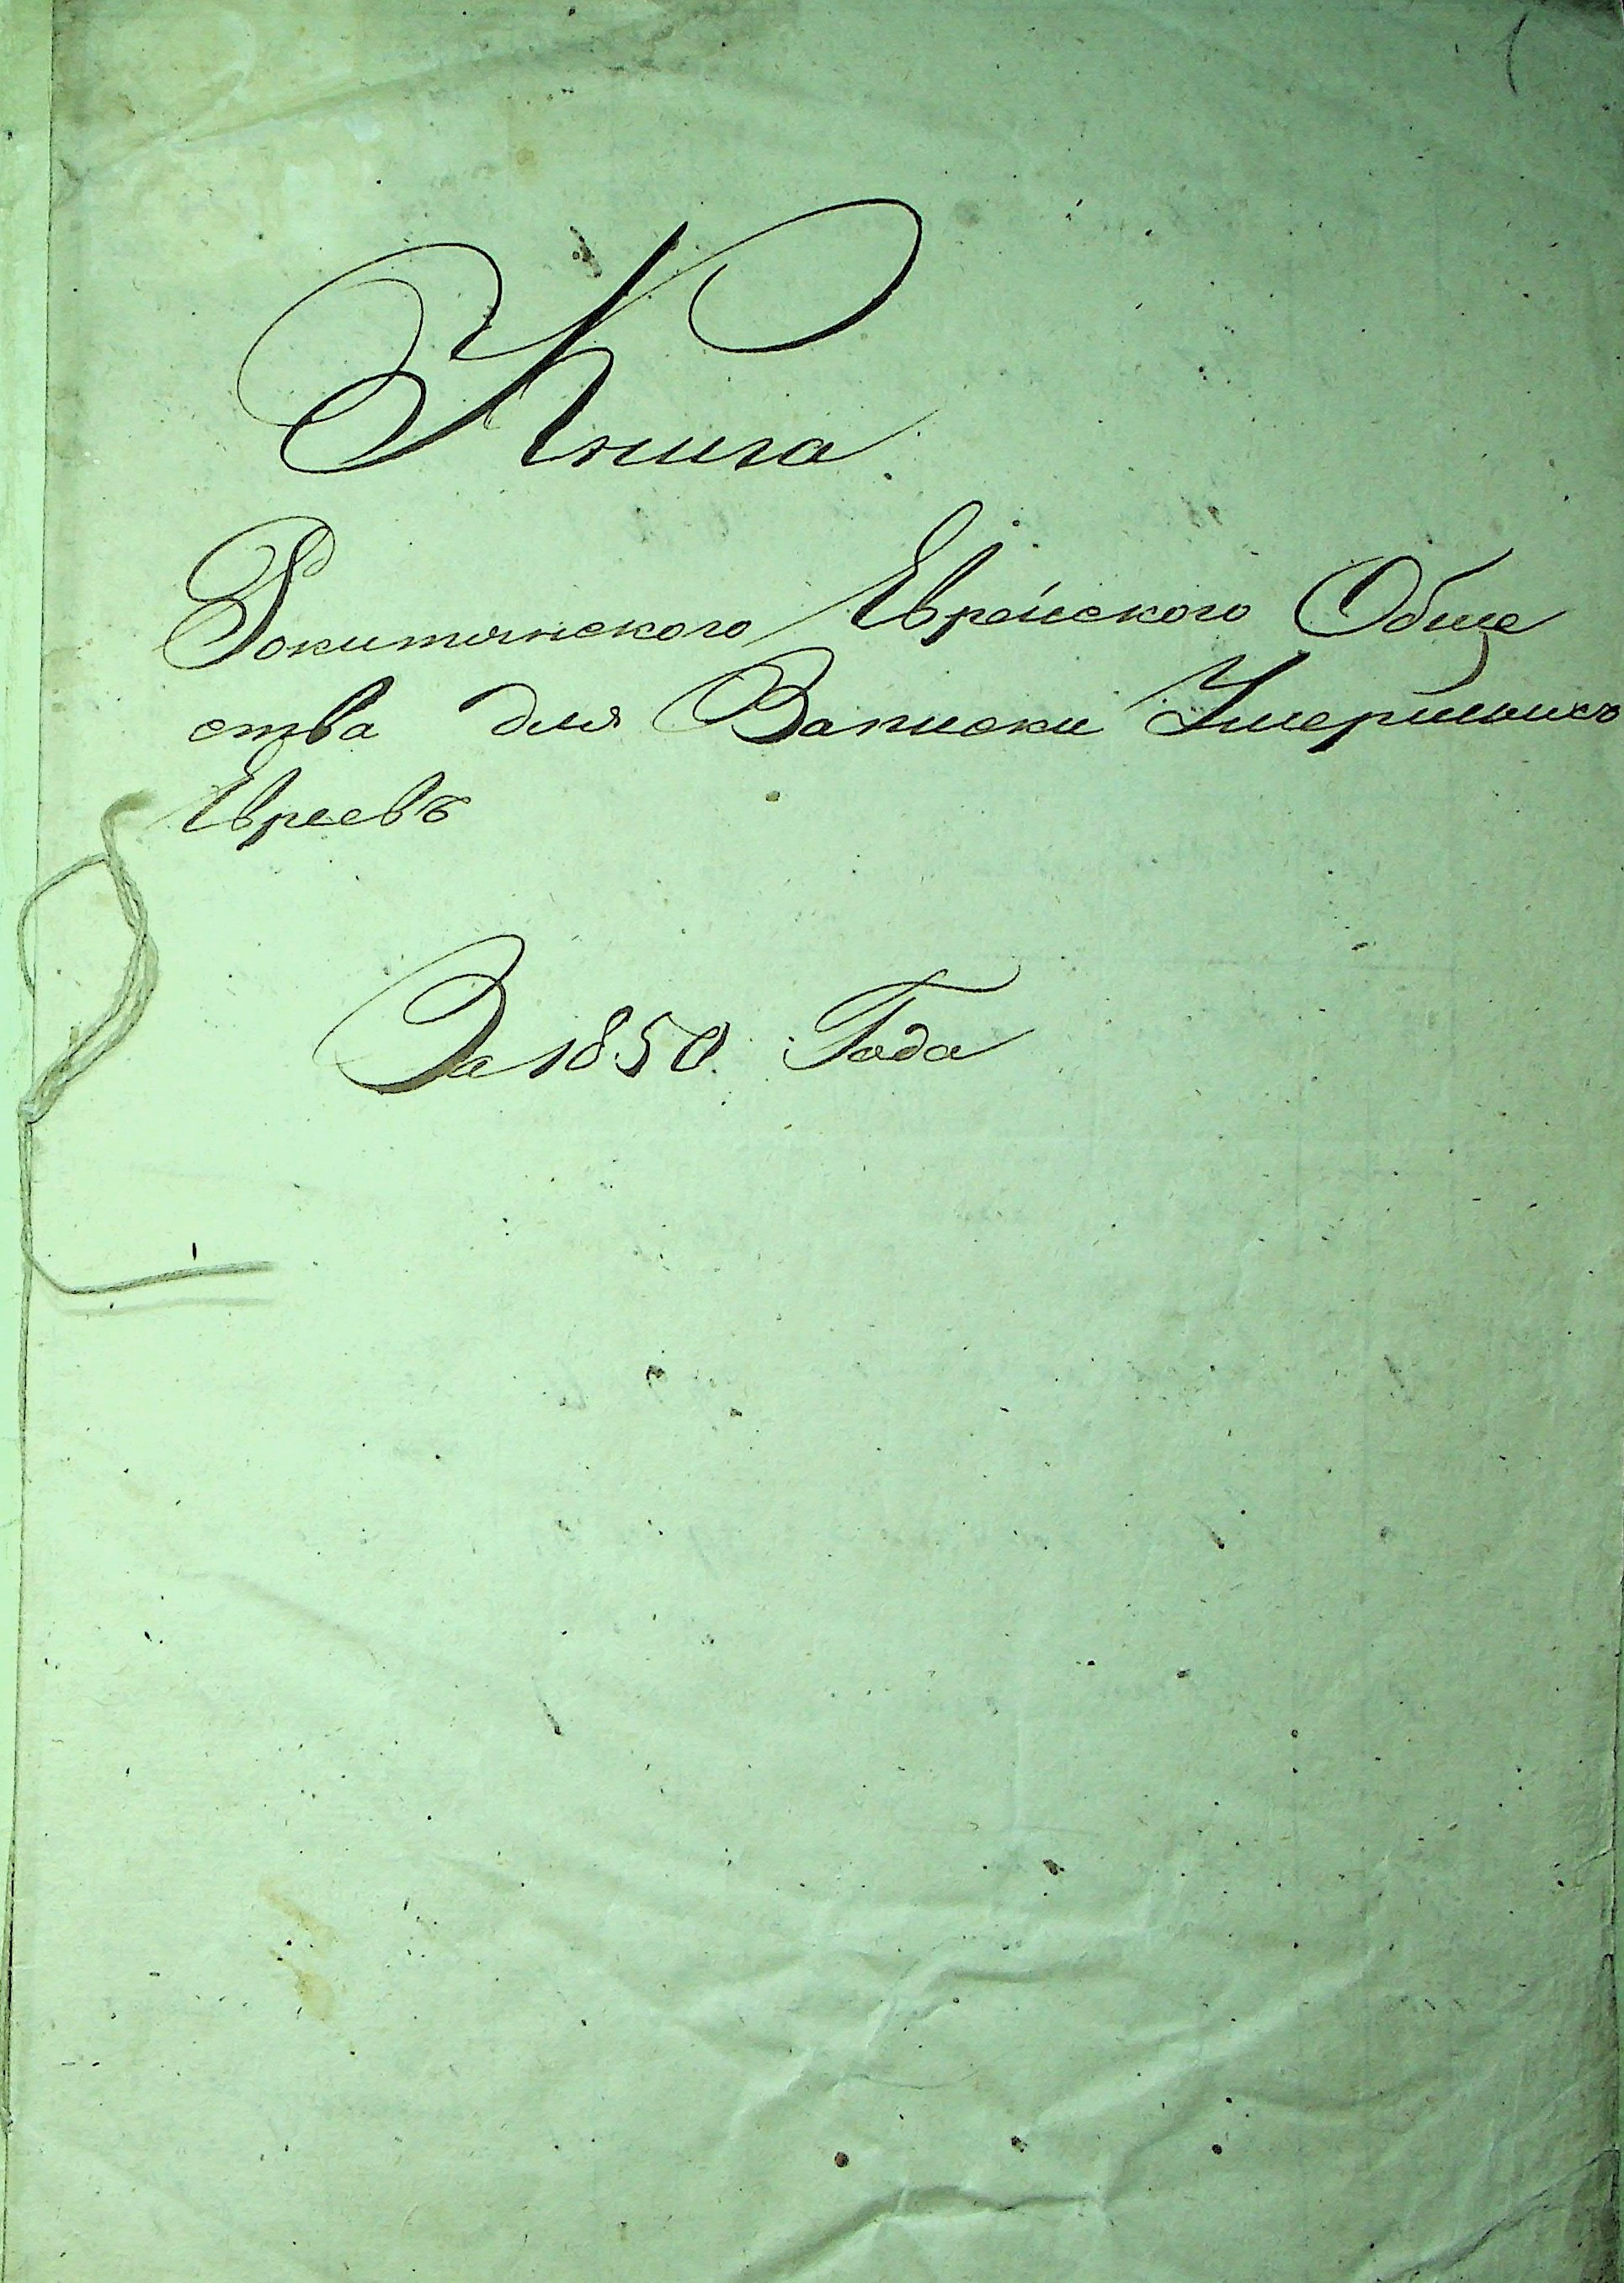 Книга
Рокитянского Еврейского Обще
ства для Записки Умершихъ
Евреевъ
За 1850 Года